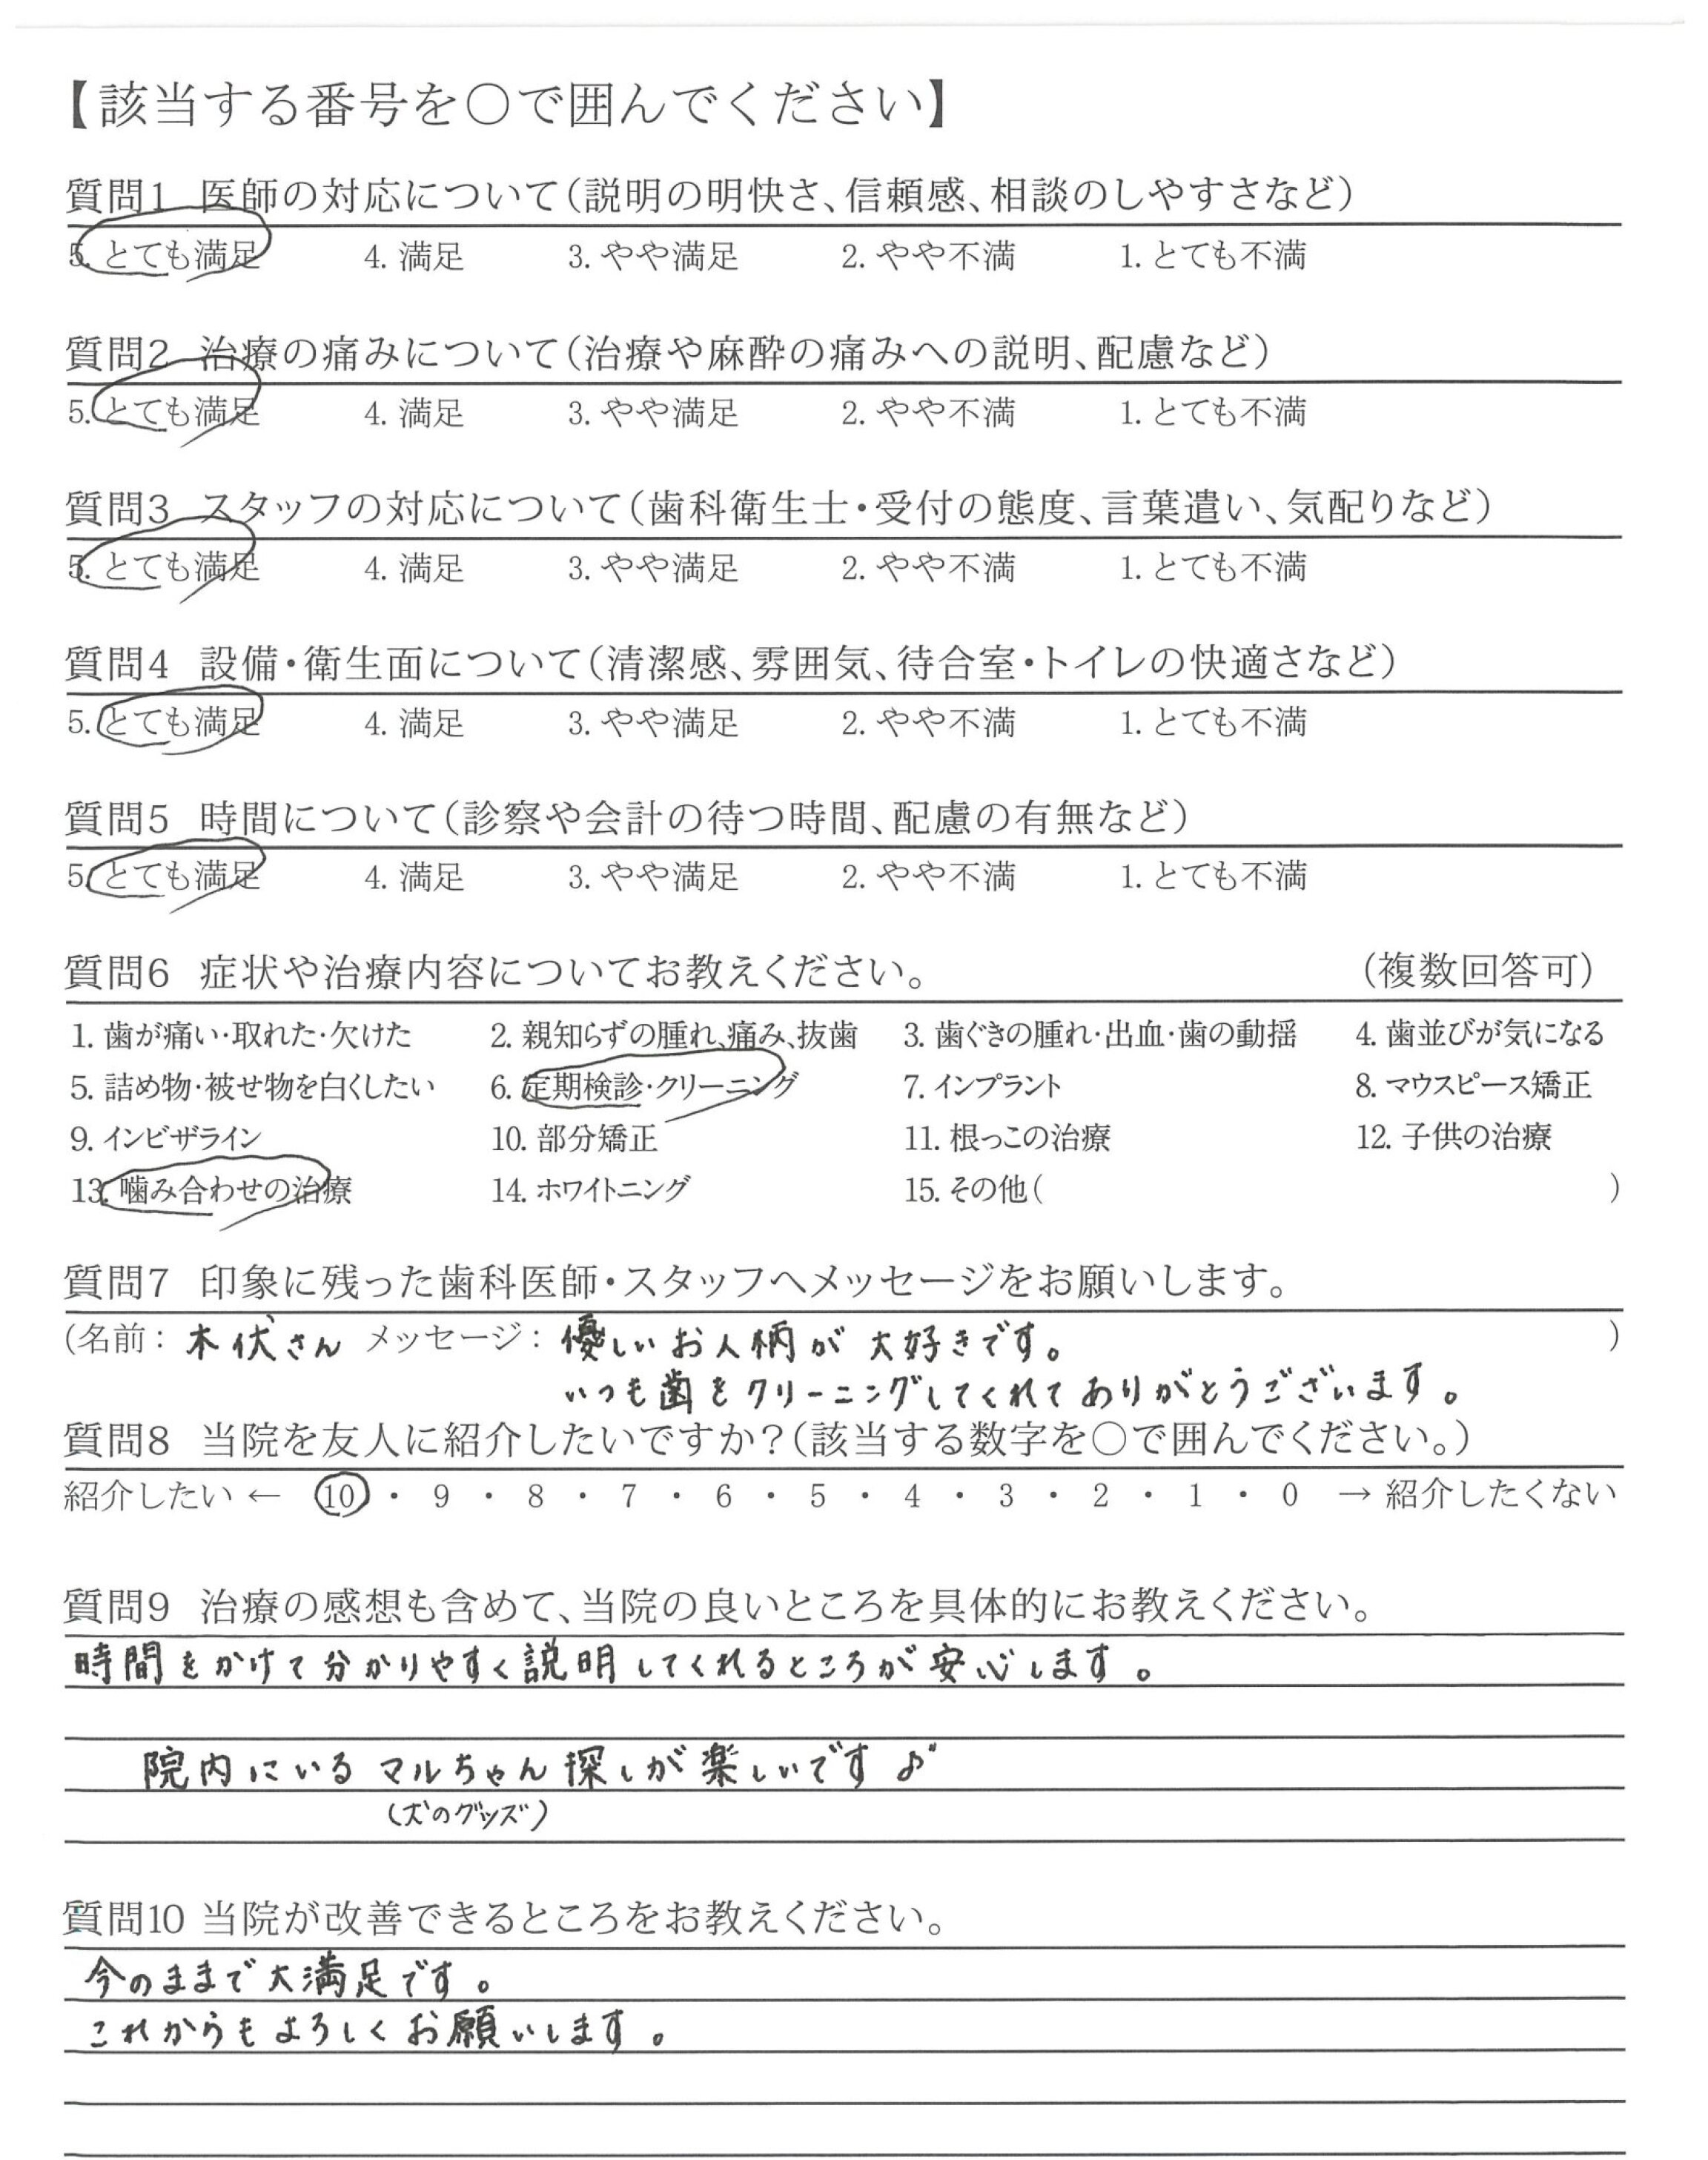 【該当する番号を○で囲んでください】
質問1 医師の対応について(説明の明快さ、信頼感、相談のしやすさなど)
5. とても満足 4. 満足 3. やや満足 2. やや不満 1. とても不満
質問2 治療の痛みについて(治療や麻酔の痛みへの説明、配慮など)
5. とても満足 4. 満足 3. やや満足 2. やや不満 1. とても不満
質問3 スタッフの対応について(歯科衛生士・受付の態度、言葉遣い、気配りなど)
5. とても満足 4. 満足 3. やや満足 2. やや不満 1. とても不満
質問4 設備・衛生面について(清潔感、雰囲気、待合室・トイレの快適さなど)
5. とても満足 4. 満足 3. やや満足 2. やや不満 1. とても不満
質問5 時間について(診察や会計の待つ時間、配慮の有無など)
5. とても満足 4. 満足 3. やや満足 2. やや不満 1. とても不満
質問6 症状や治療内容についてお教えください。 (複数回答可)
1. 歯が痛い・取れた・欠けた 2. 親知らずの腫れ、痛み、抜歯 3. 歯ぐきの腫れ・出血・歯の動揺 4. 歯並びが気になる
5. 詰め物・被せ物を白くしたい 6. 定期検診・クリーニング 7. インプラント 8. マウスピース矯正
9. インビザライン 10. 部分矯正 11. 根っこの治療 12. 子供の治療
13. 噛み合わせの治療 14. ホワイトニング 15. その他( )
質問7 印象に残った歯科医師・スタッフへメッセージをお願いします。
(名前: 木伏さん メッセージ: 優しいお人柄が大好きです。 )
いつも歯をクリーニングしてくれてありがとうございます。
質問8 当院を友人に紹介したいですか?(該当する数字を○で囲んでください。)
紹介したい ← 10 ・ 9 ・ 8 ・ 7 ・ 6 ・ 5 ・ 4 ・ 3 ・ 2 ・ 1 ・ 0 → 紹介したくない
質問9 治療の感想も含めて、当院の良いところを具体的にお教えください。
時間をかけて分かりやすく説明してくれるところが安心します。
院内にいるマルちゃん探しが楽しいです♪
(犬のグッズ)
質問10 当院が改善できるところをお教えください。
今のままで大満足です。
これからもよろしくお願いします。